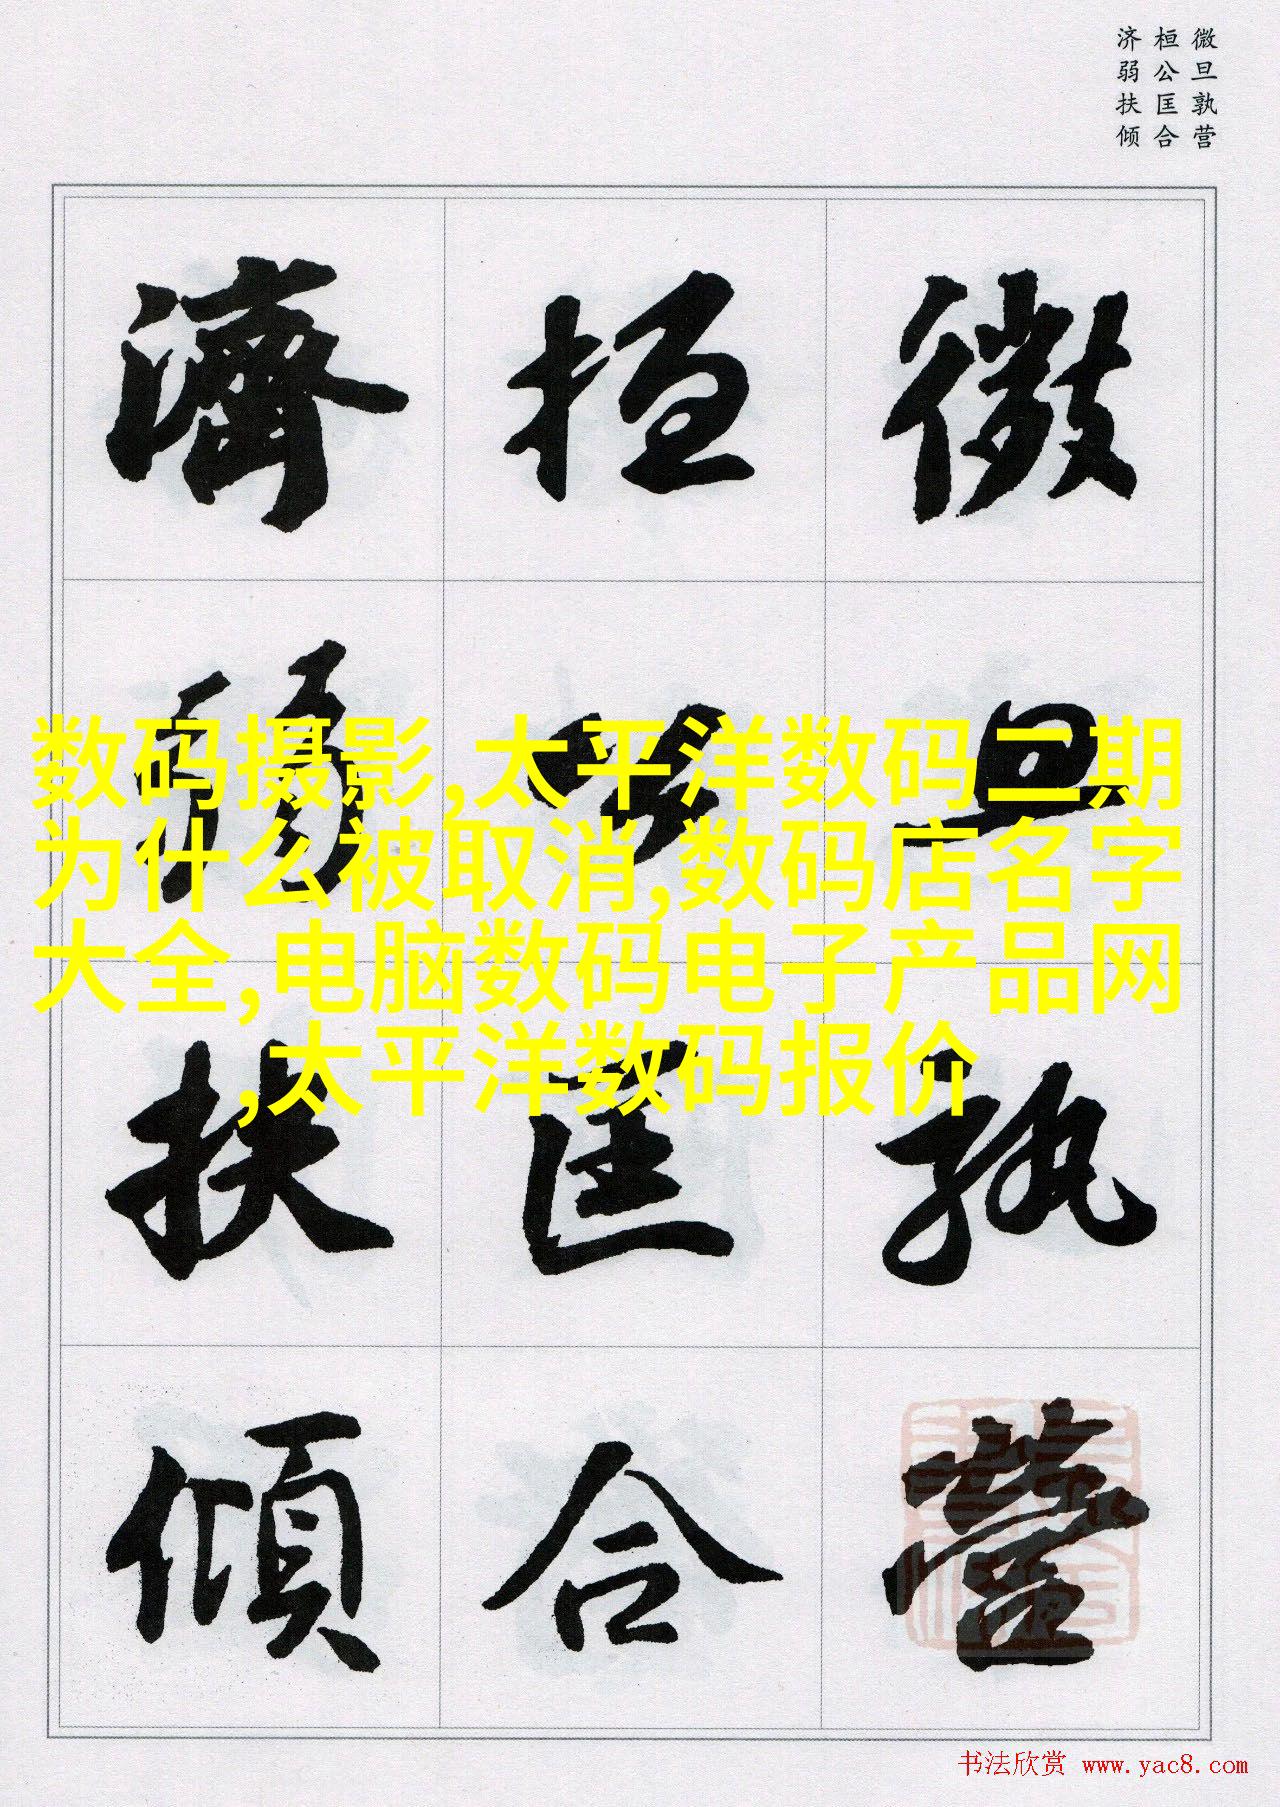 微旦孰营
桓公匡合
济弱扶倾
微旦孰營
桓公匡合
濟弱扶傾
数码摄影,太平洋数码二期
为什么被取消,数码店名字
大全,电脑数码电子产品网
,太平洋数码报价
书法欣赏 www.yac8.com